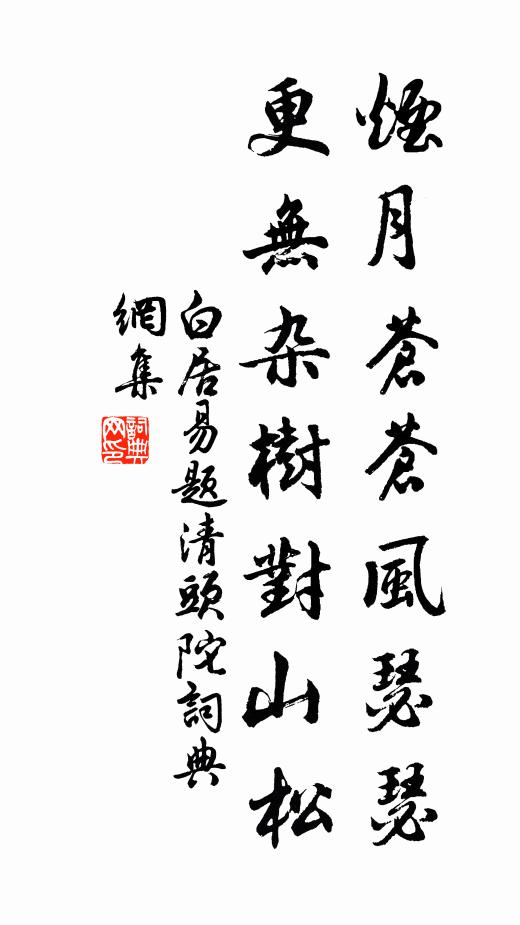 煙月蒼蒼風瑟瑟
更無杂樹對山松
白居易题清頭陀詞典
網集
詞典
网印